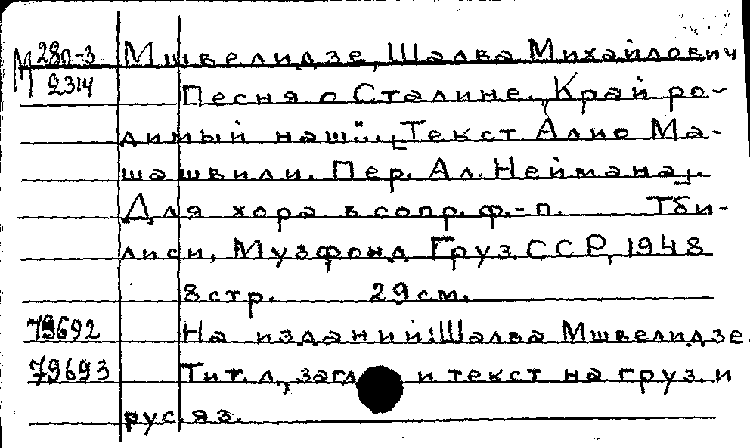 М 280-3 Мшвелидзе, Шалва Михайлович
2314 Песня о Сталине. „Край ро-
димый наш"... [Текст Алио Ма-
шашвили. Пер. Ал. Неймана].
Для хора в сопр. ф.-п. Тби-
лиси, Музфонд Груз. ССР, 1948
8 стр. 29 см.
79692 На издании: Шалва Мшвелидзе.
79693 Тит. л., загл. и текст на груз. и
рус. яз.